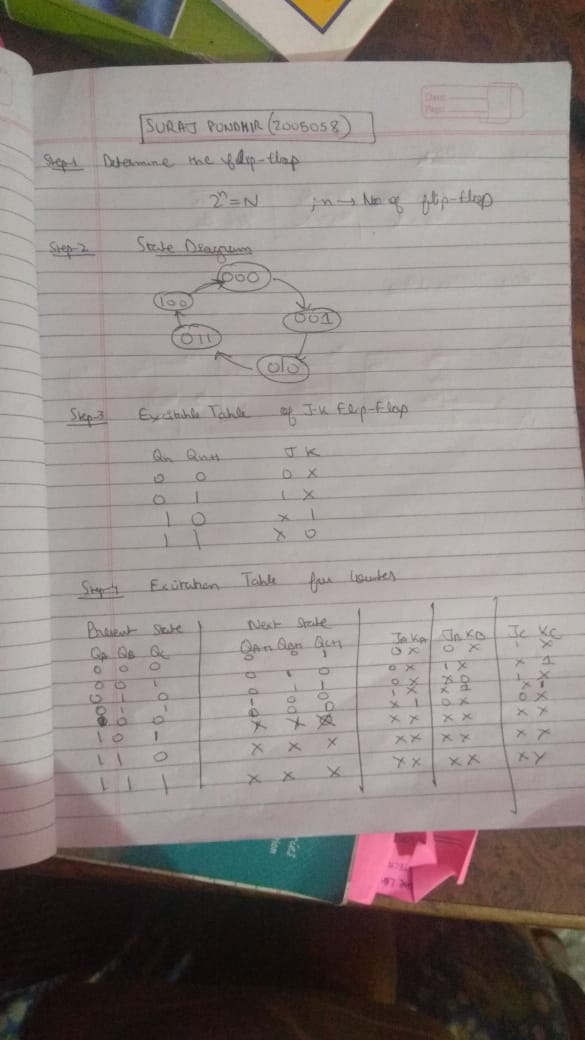 Date:
Page:
SURAJ PUNDHIR (2005058)
Step-1 Determine the flip-flop
2ⁿ=N ; n → No of flip-flop
Step-2 State Diagram
000
100
001
011
010
Step-3 Excitable Table of J-K Flip-Flop
Qn Qn+1 J K
0 0 0 X
0 1 1 X
1 0 X 1
1 1 X 0
Step-4 Exitation Table for Counter
Present State Next State
QA QB QC QA+1 QB+1 QC+1 JA KA JB KB JC KC
0 0 0 0 0 1 0 X 0 X 1 X
0 0 1 0 1 0 0 X 1 X X 1
0 1 0 0 1 1 0 X X 0 1 X
0 1 1 1 0 0 1 X X 1 X 1
1 0 0 0 0 0 X 1 0 X 0 X
1 0 1 X X X X X X X X X
1 1 0 X X X X X X X X X
1 1 1 X X X X X X X X Y